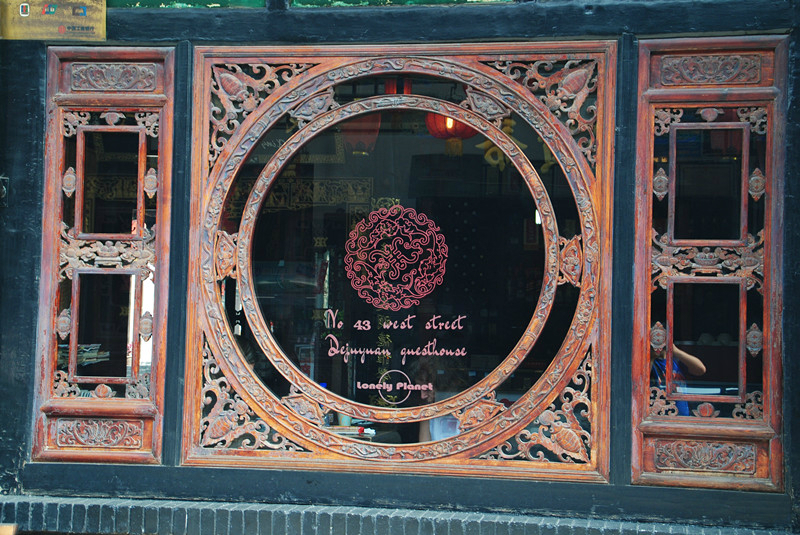 No 43 west street
Dejuyuan guesthouse
Lonely Planet